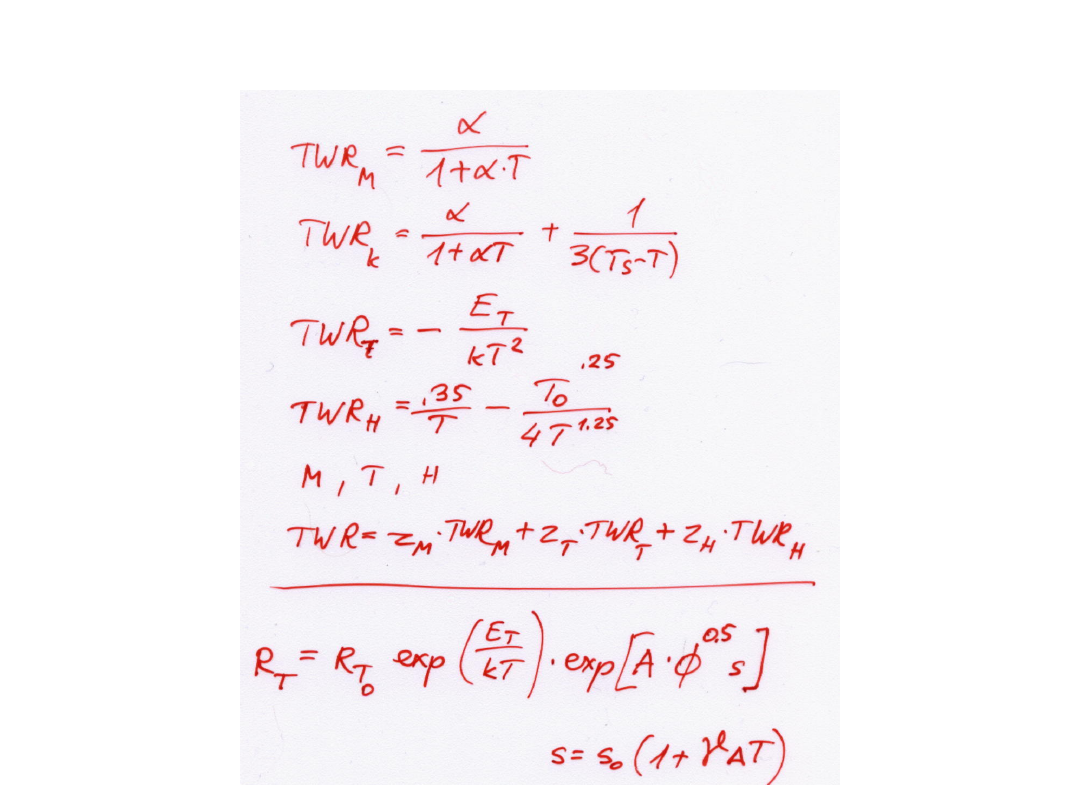 TWR_M = α / (1+α·T)
TWR_k = α / (1+αT) + 1 / (3(T_S-T))
TWR_T = - E_T / (kT²)
TWR_H = .35 / T - T_0^.25 / (4T^1.25)
M, T, H
TWR = z_M·TWR_M + z_T·TWR_T + z_H·TWR_H
R_T = R_T_0 exp(E_T / kT) · exp[A·ϕ^0.5 s]
s = s_0 (1+γAT)